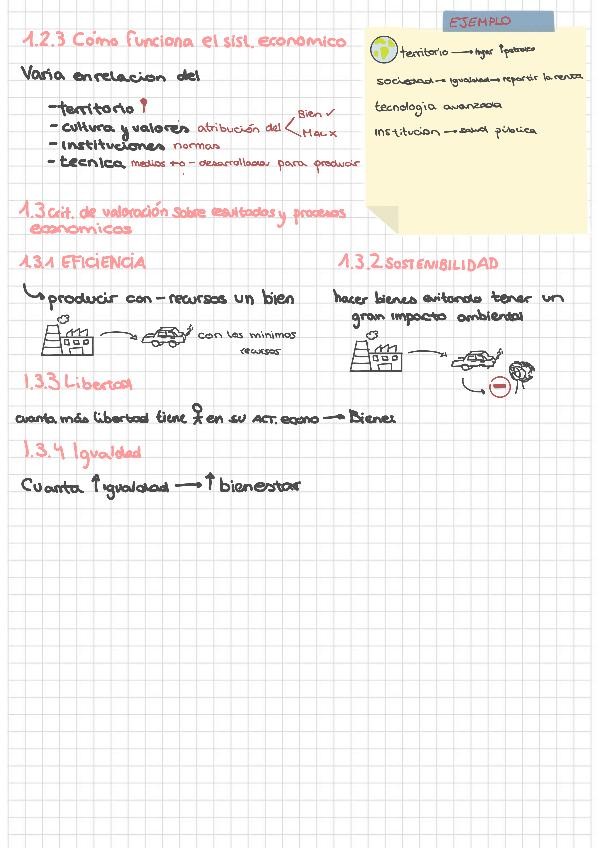 1.2.3 Cómo funciona el sist. económico
Varía en relacion del
- territorio
- cultura y valores atribución del Bien ✓
Mal x
- instituciones normas
- tecnica medios +o- desarrollados para producir
EJEMPLO
territorio → lugar ↑petroleo
sociedad → igualdad → repartir la renta
tecnologia avanzada
institucion → salud pública
1.3 Crit. de valoración sobre resultados y procesos
economicos
1.3.1 EFICIENCIA
↳ producir con - recursos un bien
con los minimos
recursos
1.3.2 SOSTENIBILIDAD
hacer bienes evitando tener un
gran impacto ambiental
1.3.3 Libertad
cuanta más libertad tiene en su ACT. econo → Bienes
1.3.4 Igualdad
Cuanta ↑ igualdad → ↑ bienestar